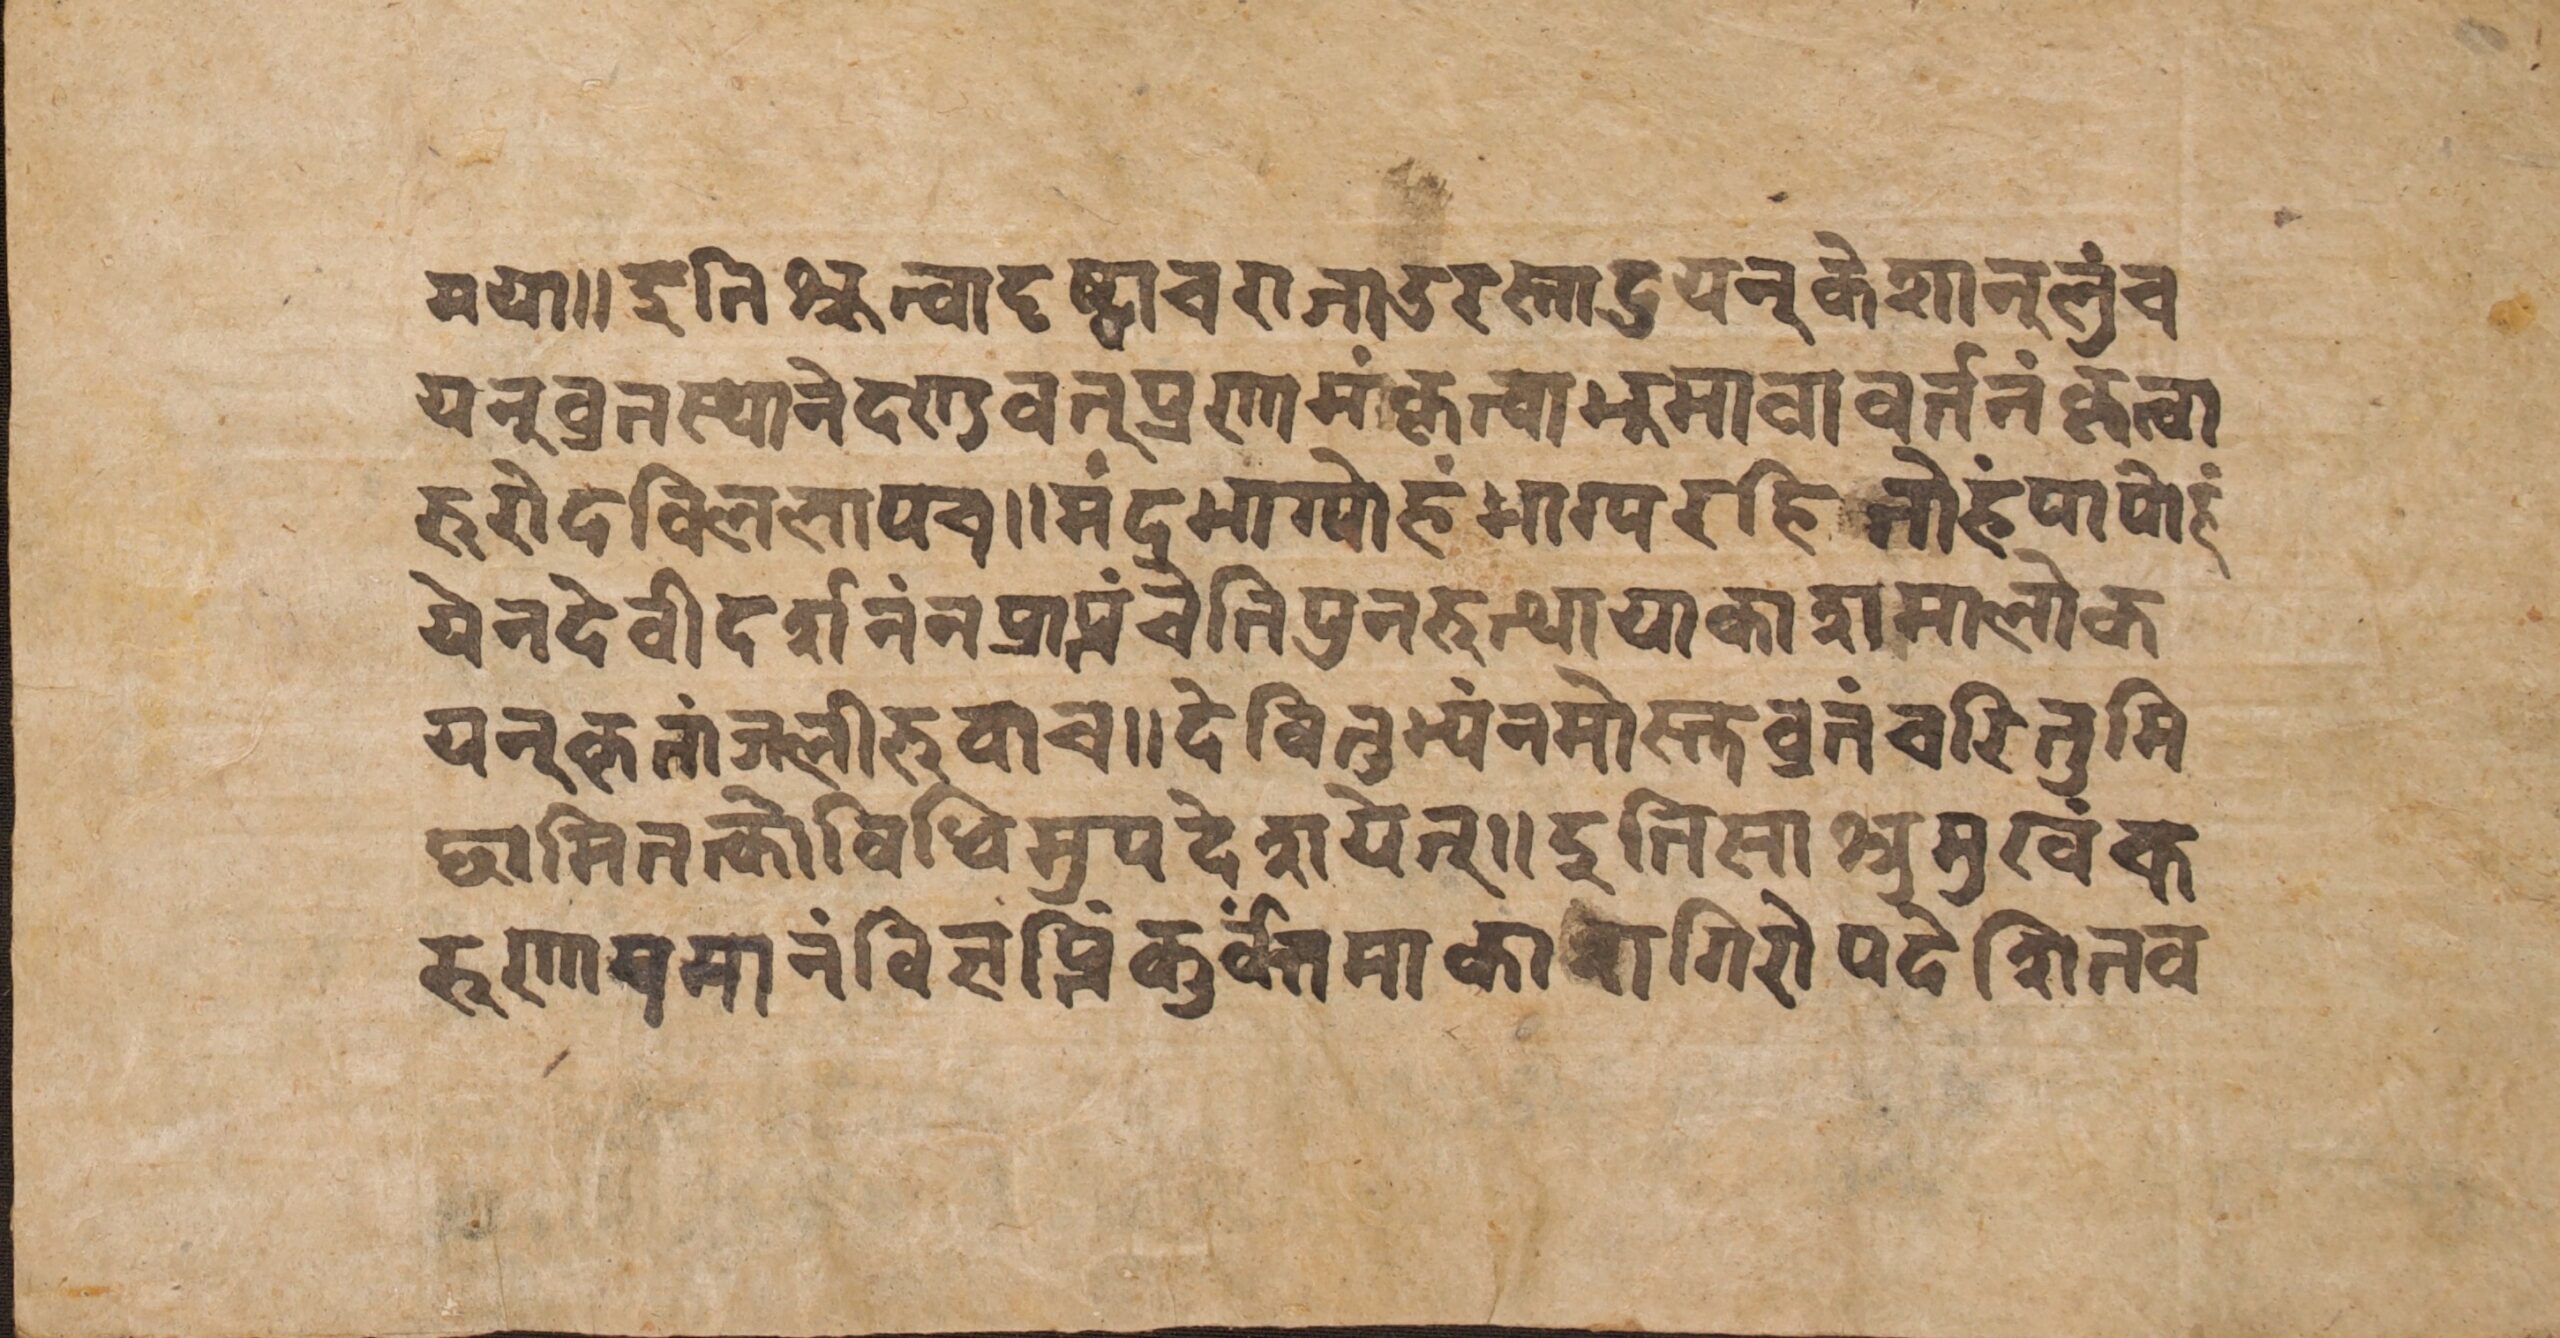 मया॥ इति श्रूत्वा दृष्ट्वा च राजा उरस्ताडुयन् केशान् लुंच
यन् व्रतस्थाने दण्डवत् प्रणामं कृत्वा भूमावावर्तनं कृत्वा
रुरोद विललाप च॥ मंदभाग्योहं भाग्यरहितोहं पापोहं
येन देवीदर्शनं न प्राप्तं चेति पुनरुत्थायाकाशमालोक
यन् कृतांजलीरुवाच॥ देवि तुभ्यं नमोस्तु व्रतं चरितुमि
छामि तत्को विधिमुपदेशयेत्॥ इति साश्रुमुखं क
रुणायमानं विज्ञप्तिं कुर्वंतमाकाशगिरोपदेशित व